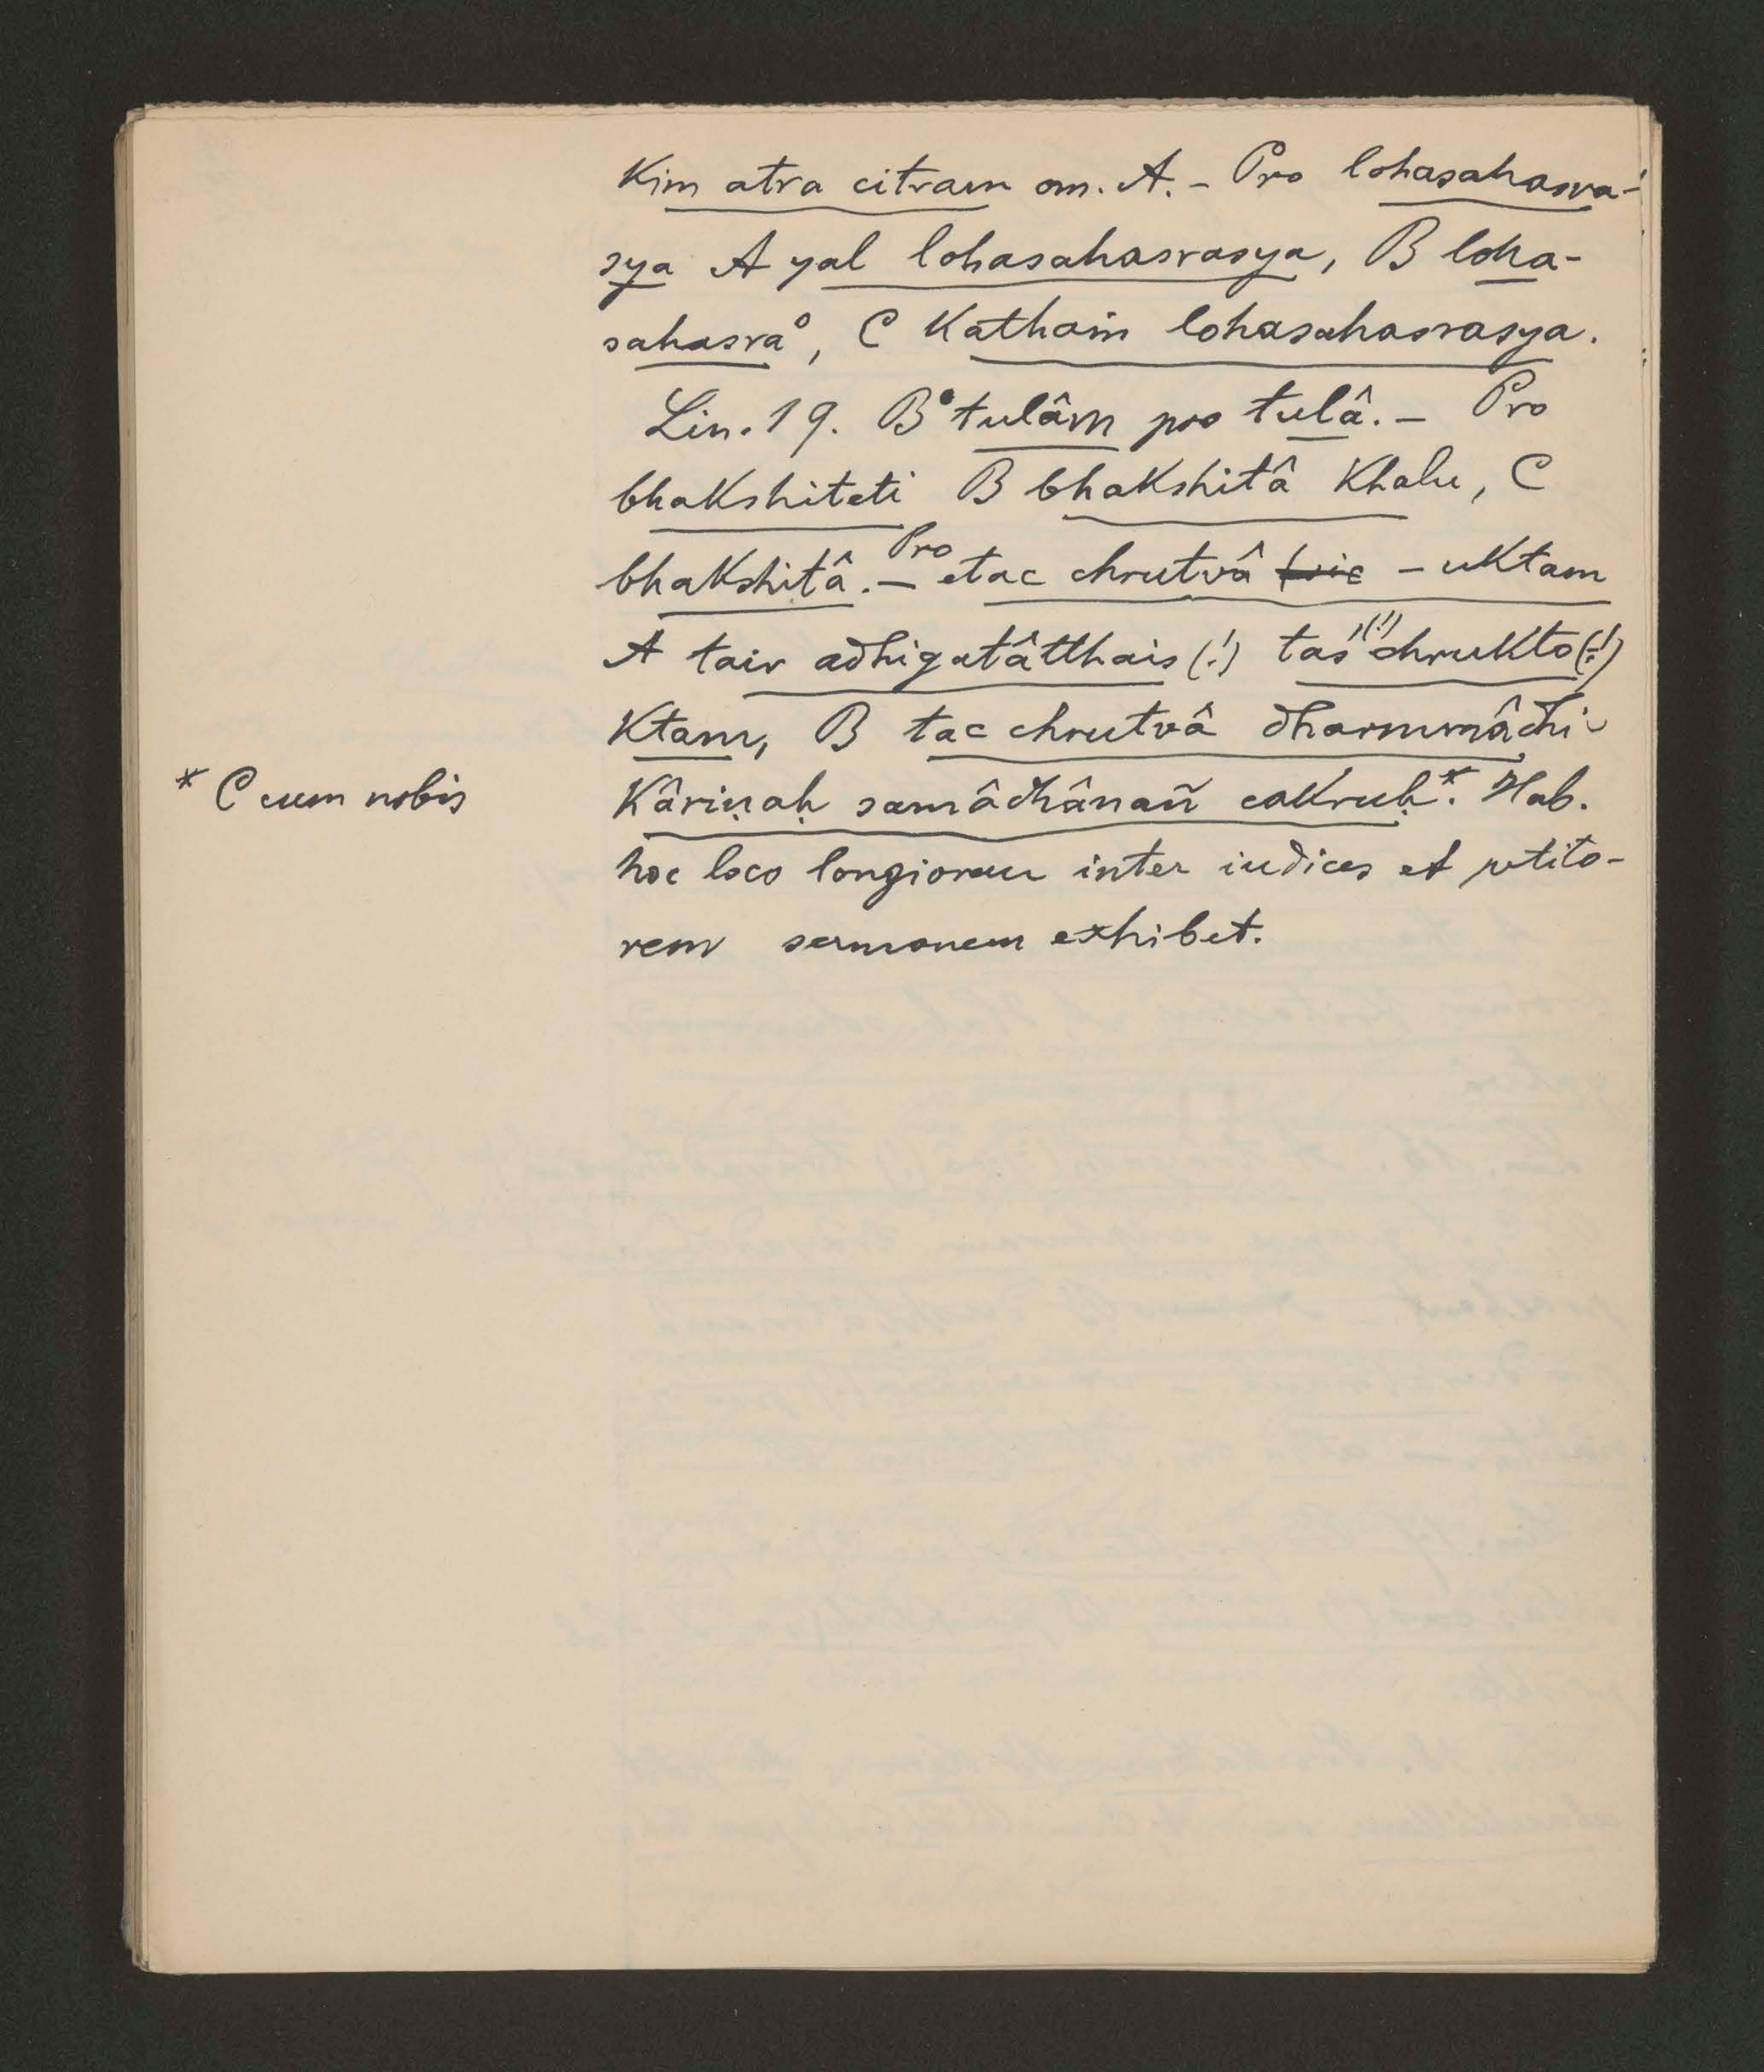 Kim atra citram om. A. – Pro lohasahasra-
sya A yal lohasahasrasya, B loha-
sahasra°, C Kathaṁ lohasahasrasya.
Lin. 19. B °tulâm pro tulâ. – Pro
bhakshiteti B bhakshitâ Khalu, C
bhakshitâ. – Pro etac chrutvâ – uktam
A tair adhigatâtthais (!) tas (!) chrukto (!)
Ktam, B tac chrutvâ dharmmâdhi-
* C cum nobis
Kâriṇaḥ samâdhânañ cakruḥ*. Hab.
hoc loco longiorem inter iudices et petito-
rem sermonem exhibet.